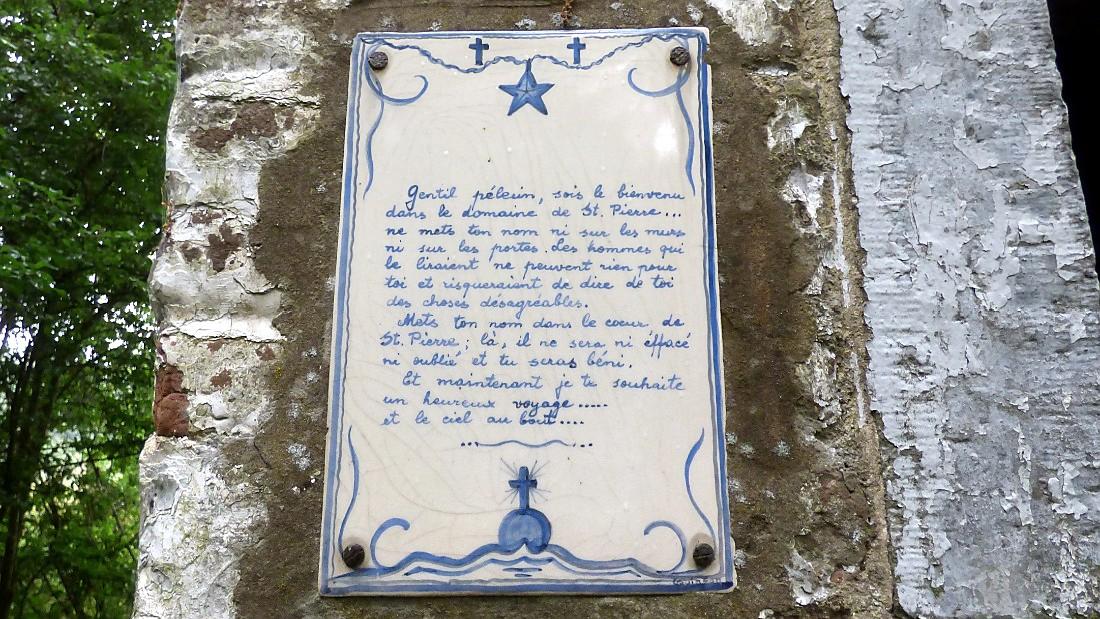 Gentil pélerin, sois le bienvenu
dans le domaine de St. Pierre...
ne mets ton nom ni sur les murs
ni sur les portes. Les hommes qui
le liraient ne peuvent rien pour
toi et risqueraient de dire de toi
des choses désagréables.
Mets ton nom dans le coeur de
St. Pierre ; là, il ne sera ni éffacé
ni oublié et tu seras béni.
Et maintenant je te souhaite
un heureux voyage.....
et le ciel au bout....